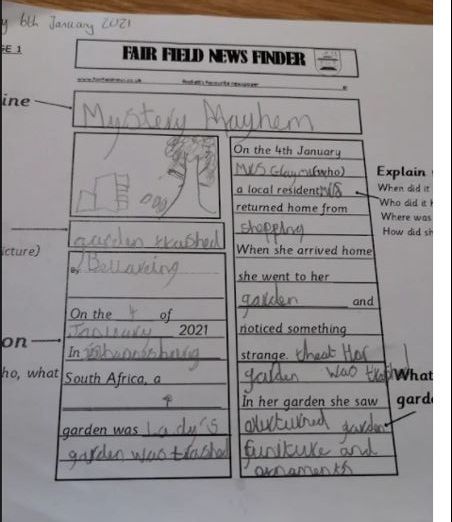 6th January 2021
GE 1
FAIR FIELD NEWS FINDER
ine
Mystery Mayhem
garden trashed
icture)
By
On the 4 of
January 2021
on
In
ho, what
South Africa, a
garden was Lady's
garden was trashed
On the 4th January
Mrs (who)
a local resident
returned home from
shopping
When she arrived home
she went to her
garden and
noticed something
strange. that Her
garden was trashed
In her garden she saw
garden
furniture and
ornaments
Explain
When did it
Who did it h
Where was
How did sh
What
garde